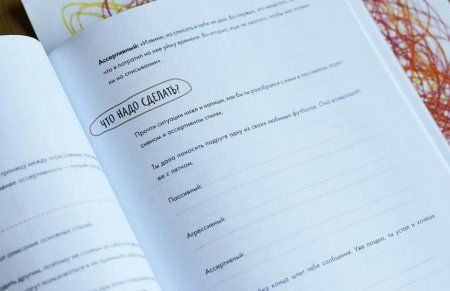 Ассертивный: «Извини, но списать я тебе не дам. Во-первых, это нечестно,
что я потратил на нее уйму времени. Во-вторых, еще не хватало, чтобы нас
ли на списывании».
ЧТО НАДО СДЕЛАТЬ?
Прочти ситуации ниже и напиши, как бы ты разобрался с ними в пассивном, агрес-
сивном и ассертивном стилях.
Ты дала поносить подруге одну из своих любимых футболок. Она возвращает
ее с пятном.
Пассивный:
Агрессивный:
Ассертивный:
без конца шлет тебе сообщения. Уже поздно, ты устал и хочешь
границу между агрессивным,
ассертивность — лучше
описание основных стилей.
другим, поэтому не стоишь за себя и
могут пользоваться и не принимать